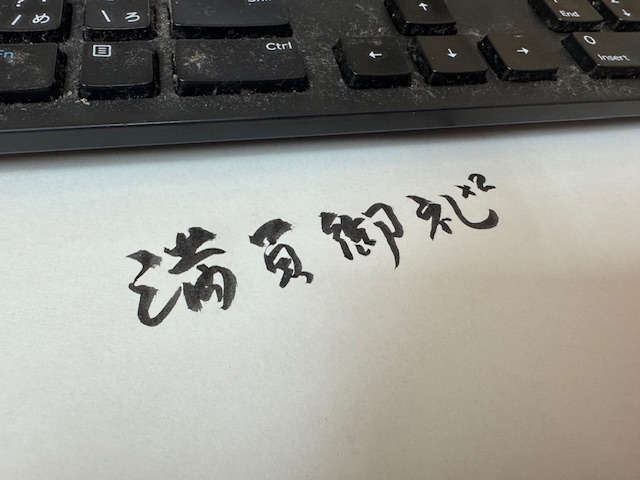 め ろ Shift ↑ End
Fn Ctrl ← ↓ → 0 Insert
満員御礼×2